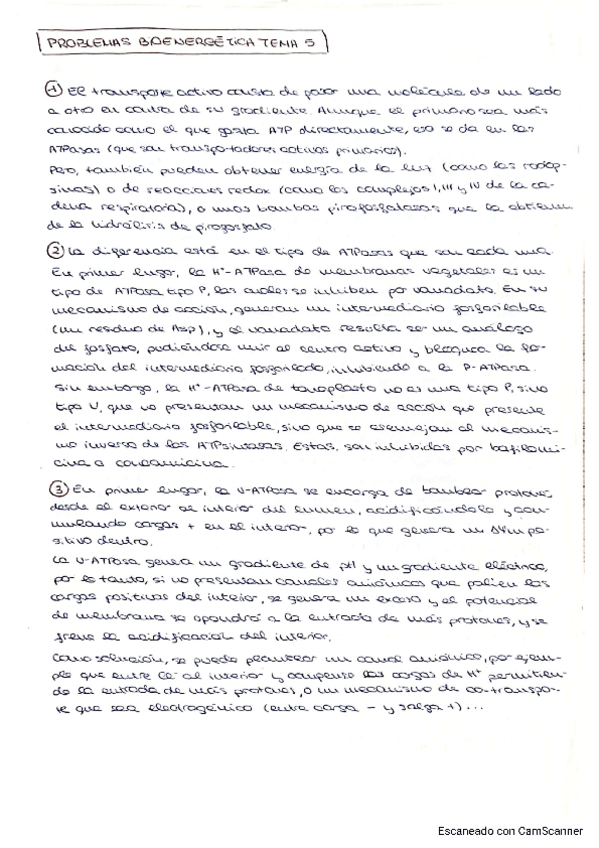 PROBLEMAS BIOENERGÉTICA TEMA 5
① El transporte activo consta de pasar una molécula de un lado
a otro en contra de su gradiente. Aunque el primario sea más
conocido como el que gasta ATP directamente, eso se da en las
ATPasas (que son transportadores activos primarios).
Pero, también pueden obtener energía de la luz (como las rodop-
sinas) o de reacciones redox (como los complejos I, III y IV de la ca-
dena respiratoria), o unas bombas pirofosfatasas que la obtienen
de la hidrólisis de pirofosfato.
② La diferencia está en el tipo de ATPasas que son cada una.
En primer lugar, la H⁺-ATPasa de membranas vegetales es un
tipo de ATPasa tipo P, las cuales se inhiben por vanadato. En su
mecanismo de acción, generan un intermediario fosforilable
(un residuo de Asp), y el vanadato resulta ser un análogo
del fosfato, pudiéndose unir al centro activo y bloquea la for-
mación del intermediario fosforilado, inhibiendo a la P-ATPasa.
Sin embargo, la H⁺-ATPasa de tonoplasto no es una tipo P, sino
tipo V, que no presentan un mecanismo de acción que presente
el intermediario fosforilable, sino que se asemejan al mecanis-
mo inverso de las ATPsintasas. Estas, son inhibidas por bafilomi-
cina o concanamicina.
③ En primer lugar, la V-ATPasa se encarga de bombear protones
desde el exterior al interior del lumen, acidificándolo y acu-
mulando cargas + en el interior, por lo que genera un ΔΨm po-
sitivo dentro.
La V-ATPasa genera un gradiente de pH y un gradiente eléctrico,
por lo tanto, si no presentan canales aniónicos que palien las
cargas positivas del interior, se genera un exceso y el potencial
de membrana se opondrá a la entrada de más protones, y se
frene la acidificación del interior.
Como solución, se puede plantear un canal aniónico, por ejem-
plo que entre Cl⁻ al interior y compense las cargas de H⁺ permitien-
do la entrada de más protones, o un mecanismo de co-transpor-
te que sea electrogénico (entre carga - y salga +)...
Escaneado con CamScanner